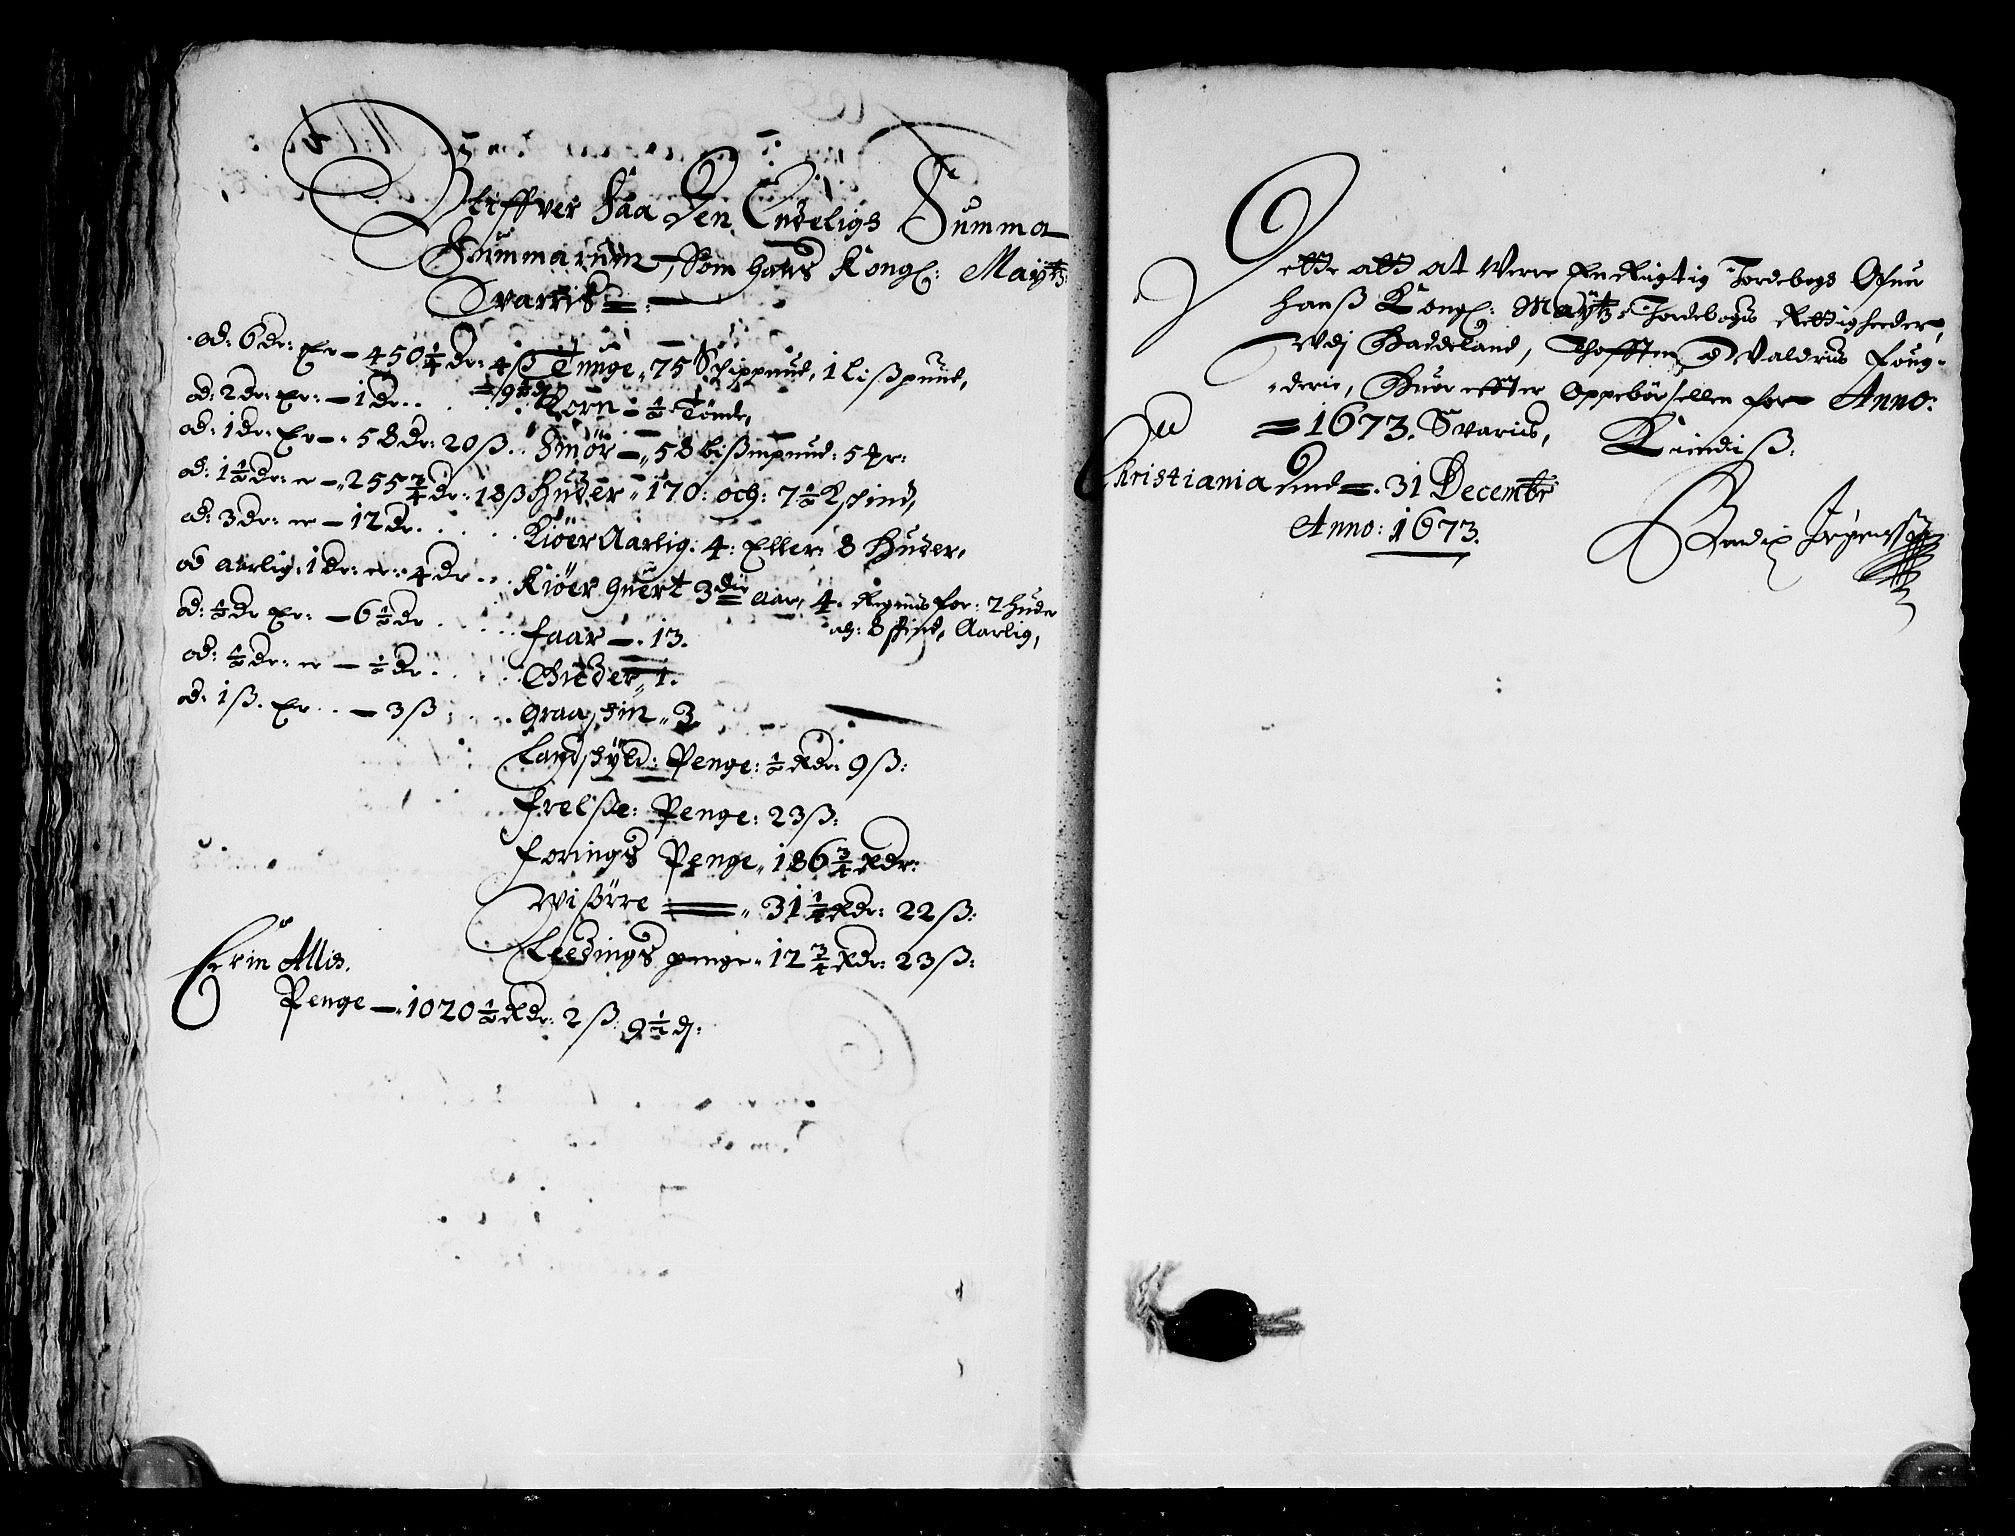 Bliffver saa Den Endeligs Summa
Summarum, Som hans Kongl: Maytz
Svaris =
ad: 6 dr: Er — 450 1/4 dr: 4 ß Tunge 75 Schippund, 1 lißpund,
9 1/2 d
ad: 2 dr: Er: — 1 dr. . . Korn — 1/2 Tønde,
ad: 1 dr: Er — 58 dr: 20 ß. . Smör — 58 bißmpund: 5 Mr:
ad: 1 1/2 dr: er — 255 3/4 dr: 18 ß Huder 170: och: 7 1/2 skind,
ad: 3 dr: er — 12 dr. . . . Kiöer Aarlig: 4: Eller: 8 Huder,
ad aarlig: 1 dr: er: 4 dr . . Kiöer huert 3die aar, 4. Regnis for: 2 huder
och: 8 skind, Aarlig,
ad: 1/2 dr Er: — 6 1/2 dr . . . . faar — 13.
ad: 1/2 dr: er — 1/2 dr . . . . Gieder 1.
ad: 1 ß. Er . . — 3 ß . . . graaskin 3.
Landskyld: Penge: 1/2 Rdr: 9 ß:
frelße: Penge: 23 ß:
forings Penge 186 3/4 Rdr:
Wisörre = 31 1/4 Rdr: 22 ß:
Leedings penge 12 3/4 Rdr: 23 ß:
Er in Allis.
Penge — 1020 1/2 Rdr: 2 ß: 9 1/2 d:
Dette altd at Werre En Rigtig Jordebogs Ofuer
Hanß Kongl: Maytz Jordebogis Rettigheeder,
Udj Hadeland, Thofften, og Valdris foug-
derie, Huor effter Oppebörsellen for Anno:
= 1673. Svaris, Kiendiß.
Christiania den = 31 Decembr
Anno: 1673.
Bendix Jörgenss